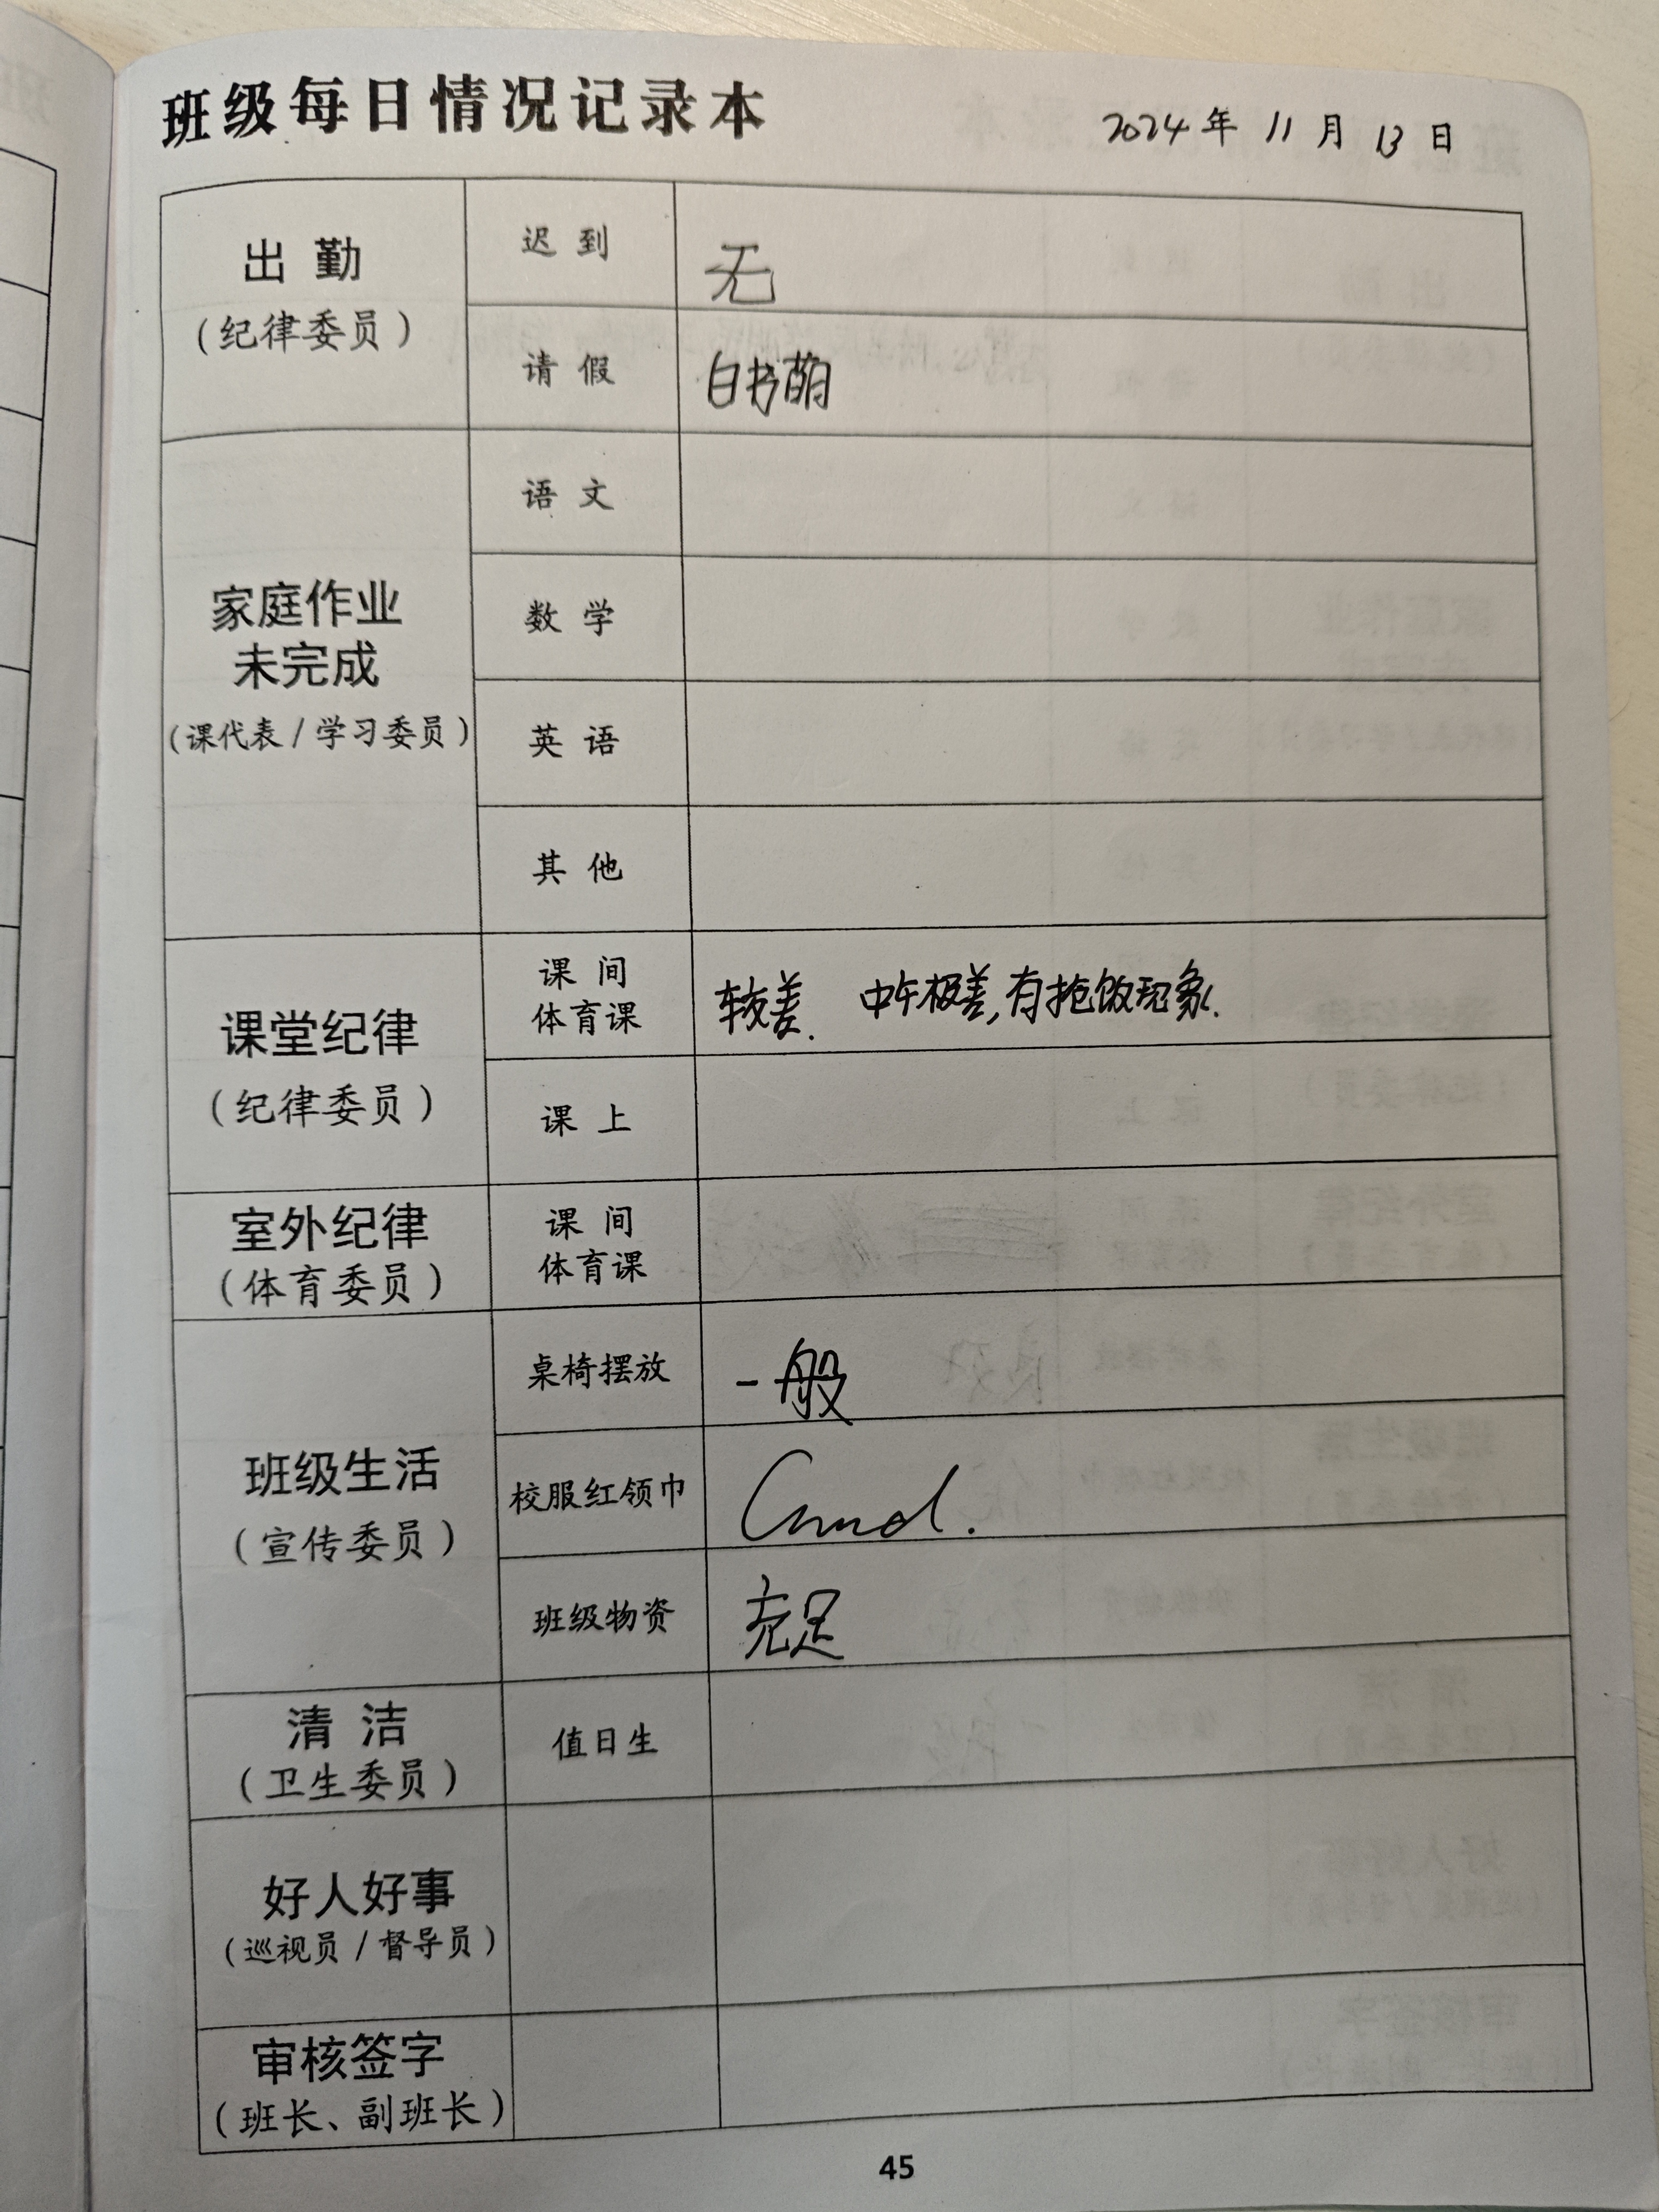 班级每日情况记录本
2024年 11月 13日
出勤
（纪律委员）
迟到
无
请假
白书萌
家庭作业
未完成
（课代表/学习委员）
语文
数学
英语
其他
课堂纪律
（纪律委员）
课间
体育课
较差. 中午极差,有抢饭现象.
课上
室外纪律
（体育委员）
课间
体育课
班级生活
（宣传委员）
桌椅摆放
一般
校服红领巾
班级物资
充足
清洁
（卫生委员）
值日生
好人好事
（巡视员/督导员）
审核签字
（班长、副班长）
45